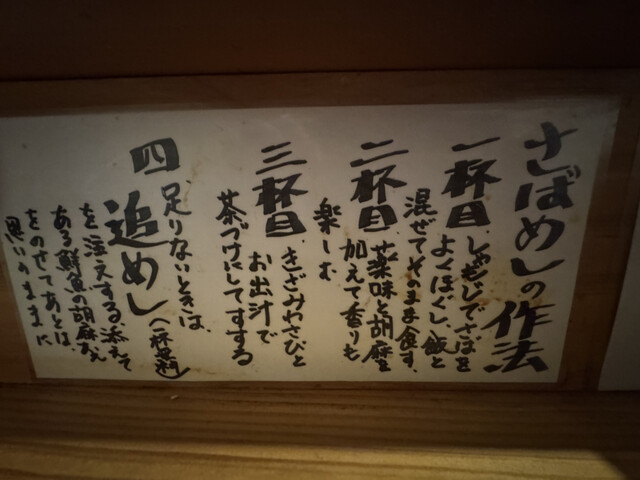 さばめしの作法
一杯目 しゃもじでさばを
よくほぐし、飯と
混ぜてそのまま食す。
二杯目 薬味と胡麻を
加えて香りも
楽しむ
三杯目 きざみわさびと
お出汁で
茶づけにしてすする
四 追めし(一杯無料)
足りないときは、
を注文する添えて
ある鮮魚の胡麻和え
をのせてあとは
思いのままに